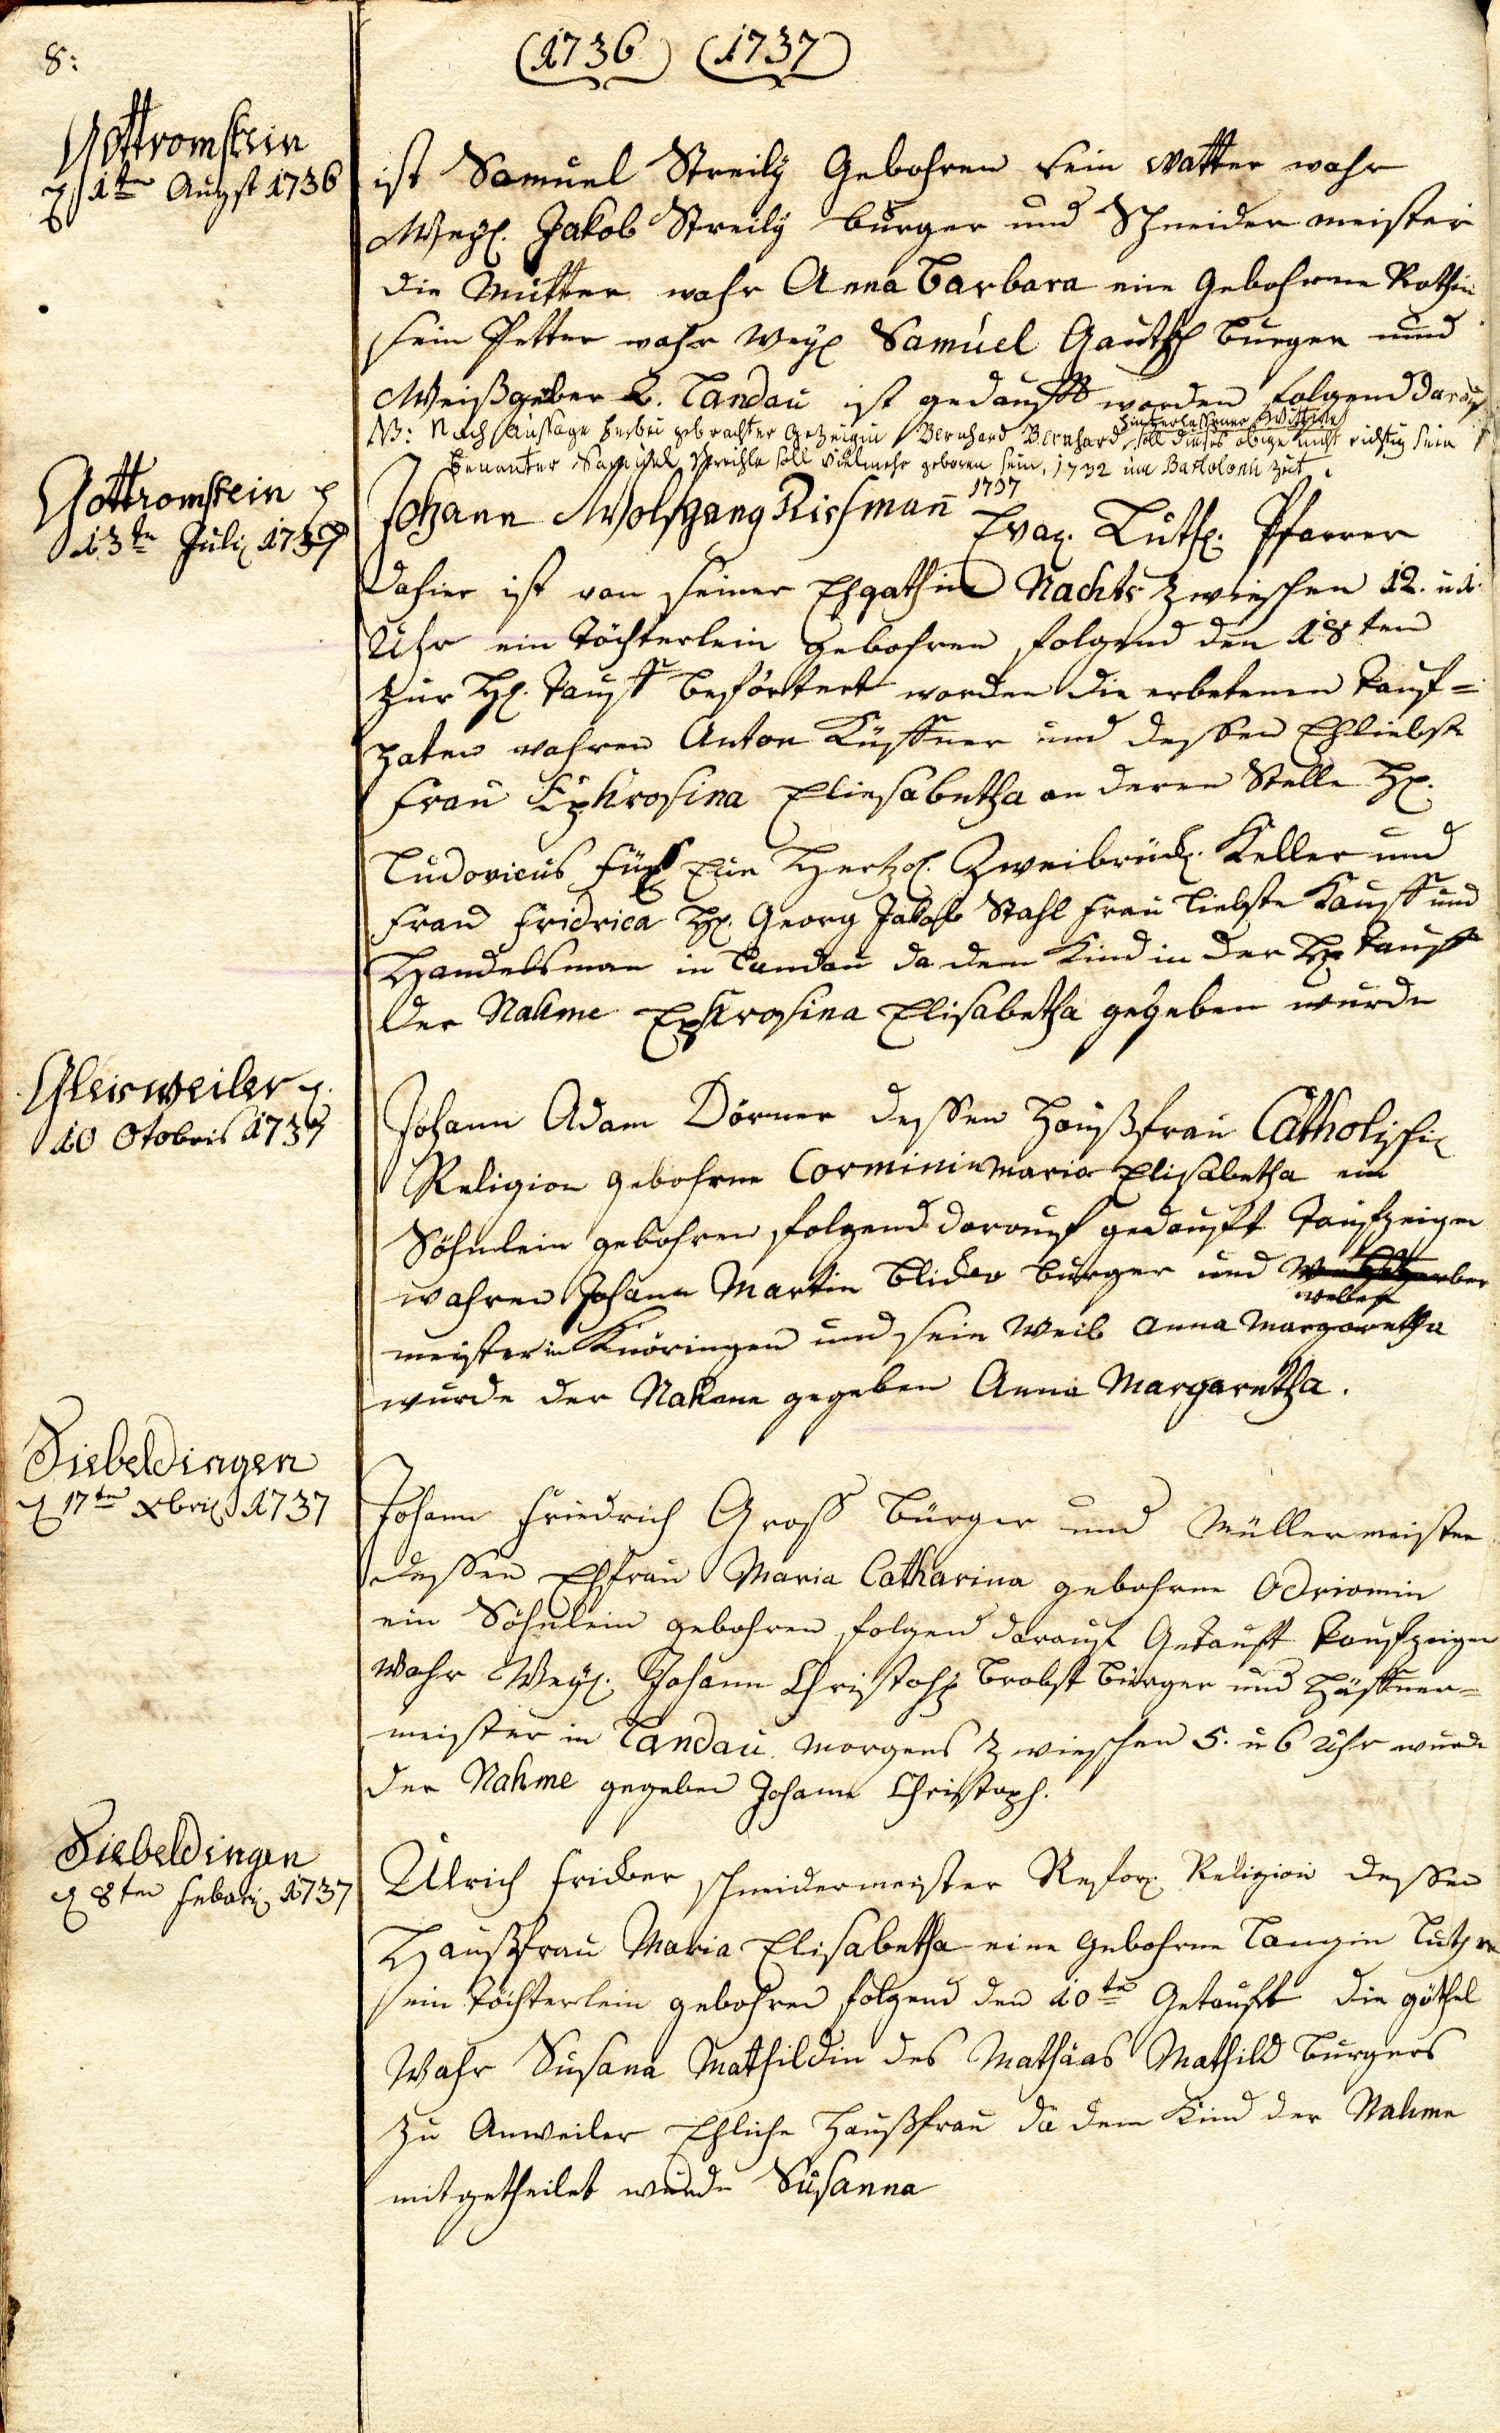 8:
(1736) (1737)
Gottromstein
d 1ten Augst 1736
ist Samuel Streily Gebohren sein Vatter wahr
Weyl. Jakob Streily burger und Schneider meister
die Mutter wahr Anna Barbara eine Gebohrene Rothin
sein Petter wahr weyl Samuel Gautsch burger und
Weißgerber z. Landau ist gedaufft worden folgend darauf
NB: Nach Aussage herbei gebrachter Gezeugin Bernhard Bernhard hinterlassener Wittwe soll dieses obige nicht richtig sein
Benanter Samuel Streihle soll vielmehr geboren sein, 1732 um Bartolomi zeit.
Gottromstein d
13ten Julij 1737
Johann Wolfgang Rissmann 1737
Evag. Luth. Pfarrer
dahier ist von seiner Ehgathin Nachts zwieschen 12. u 1.
Uhr ein töchterlein gebohren folgend den 18ten
zur Hl. tauff befördert worden die erbetenen tauf=
paten wahren Anton Küffner und dessen Ehliebste
frau Ephrosina Eliesabetha an deren Stelle H.
Ludovicus Hertzol. Zweibrück. Keller und
frau fridrica H. Georg Jakob Stahl frau liebste Kauff und
Handelsman in Landau da dem Kind in der Hl tauff
der Nahme Ephrosina Elisabetha gegeben wurde
Gleisweiler d.
10 Otobris 1737
Johann Adam Dörner dessen Haußfrau Catholisch
Religion gebohrne Corminin maria Elisabetha ein
Söhnlein gebohren folgend darauf gedaufft taufzeugen
wahren Johann Martin Elider burger und weber
meister in Knöringen und sein Weib anna Margaretha
wurde der Nahme gegeben Anna Margaretha.
Siebeldingen
d 17ten xbris 1737
Johann Friedrich Gross bürger und Müller meister
dessen Ehfrau Maria Catharina gebohrne Odriomin
ein Söhnlein gebohren folgend darauf Getauft taufzeugen
wahr Weyl. Johann Christoph brobst bürger und Häffner=
meister in Landau morgens zwieschen 5. u 6 Uhr wurde
der Nahme gegeben Johann Christoph.
Siebeldingen
d 8ten febari 1737
Ulrich fricker schneidermeister Refor Religion dessen
Haußfrau Maria Elisabetha eine Gebohrne Langin Luthr
ein töchterlein gebohren folgend den 10ten Getaufft die göthel
wahr Susana Mathildin des Mathäas Mathild burgers
zu Anweiler Ehliche haußfrau da dem Kind der Nahme
mitgetheilet wurde Susanna